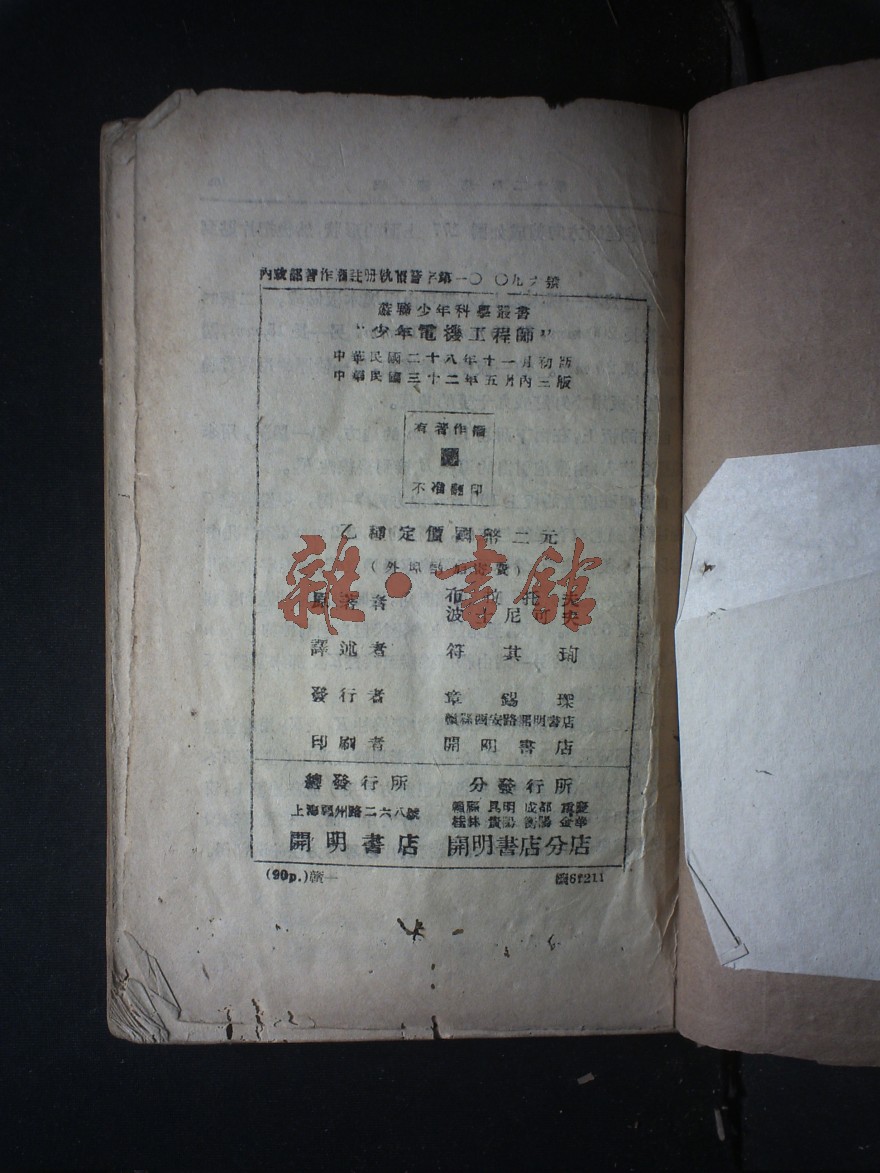 內政部著作權註冊執照警字第一〇〇九六號
蘇聯少年科學叢書
"少年電機工程師"
中華民國二十八年十一月初版
中華民國三十二年五月內三版
有著作權
不准翻印
乙種定價國幣二元
(外埠酌加寄費)
原著者 布前托夫
波士尼可夫
譯述者 符其珣
發行者 章錫琛
贛縣西安路開明書店
印刷者 開明書店
總發行所 分發行所
上海福州路二六八號
贛縣 昆明 成都 重慶
桂林 貴陽 衡陽 金華
開明書店 開明書店分店
(90p.)贛一
6f211
雜·書館